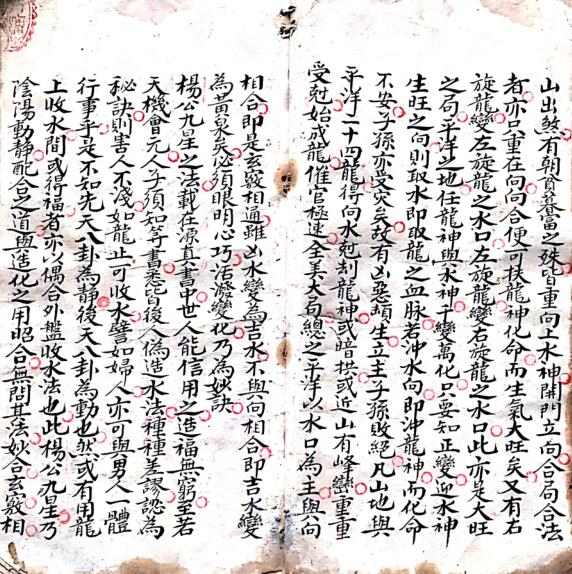 山出煞有朝貧暮富之殊皆重向上水神開門立向合局合法
者亦只重在向向合便可扶龍神化命而生氣大旺矣又有右
旋龍變左旋龍之水口左旋龍變右旋龍之水口此亦是大旺
之局平洋之地任龍神與水神千變萬化只要知正變迎水神
生旺之向則取水即取龍之血脉若沖水向即沖龍神而化命
不安子孫亦受灾矣故有凶惡顛生立主子孫敗絕凡山地與
平洋二十四龍得向水尅刦龍神或暗拱或近山有峰巒重重
受尅始戒龍催官極速全美大局總之平洋以水口為主與向
相合即是玄竅相通雖凶水變為吉水不與向相合即吉水變
為黃泉矣必須眼明心巧活潑變化乃為妙訣
楊公九星之法載在源真書中世人能信用之造福無窮至若
天機會元人子須知等書悉皆後人偽造水法種種差謬認為
秘訣則害人不淺如龍止可收水譬如婦人亦可與男人一體
行事乎是不知先天八卦為靜後天八卦為動也然或有用龍
上收水間或得福者亦以偶合外盤收水法也此楊公九星乃
陰陽動靜配合之道與造化之用昭合無間其法妙合玄竅相